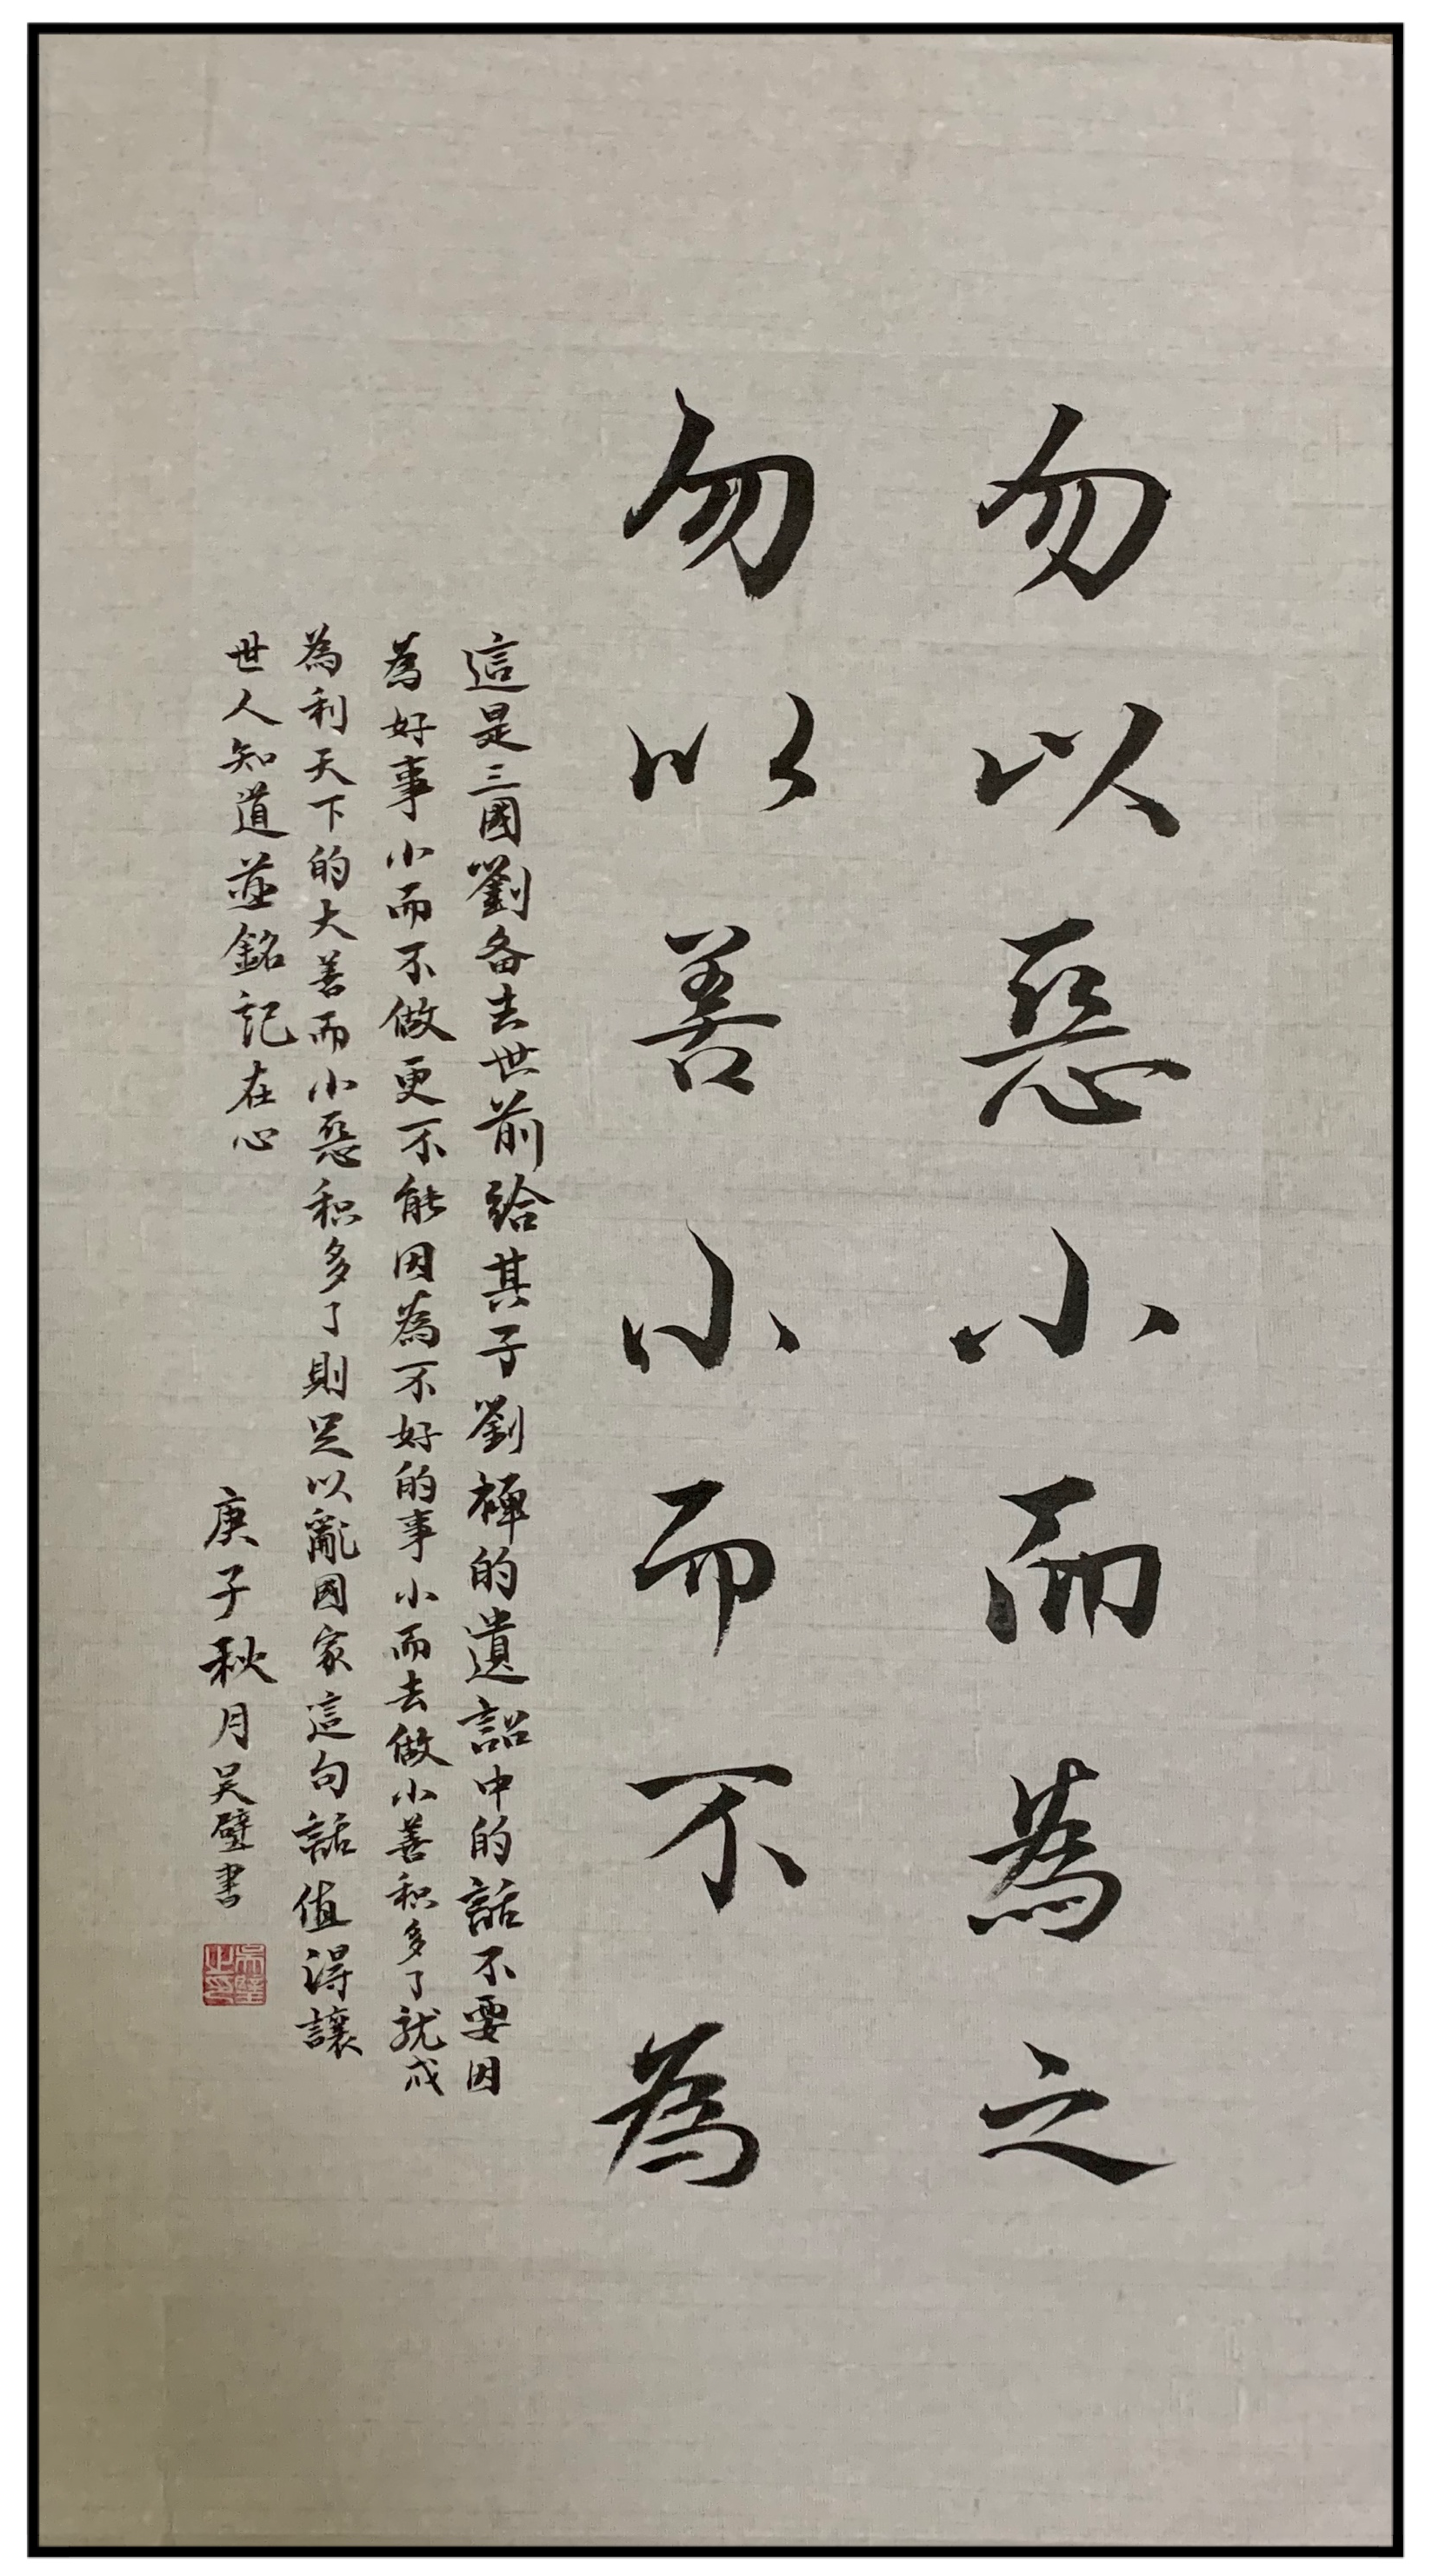 勿以惡小而為之
勿以善小而不為
這是三國劉备去世前給其子劉禪的遺詔中的話不要因
為好事小而不做更不能因為不好的事小而去做小善积多了就成
為利天下的大善而小惡积多了則足以亂國家這句話值得讓
世人知道並銘記在心
庚子秋月吴璧書
吴璧之印